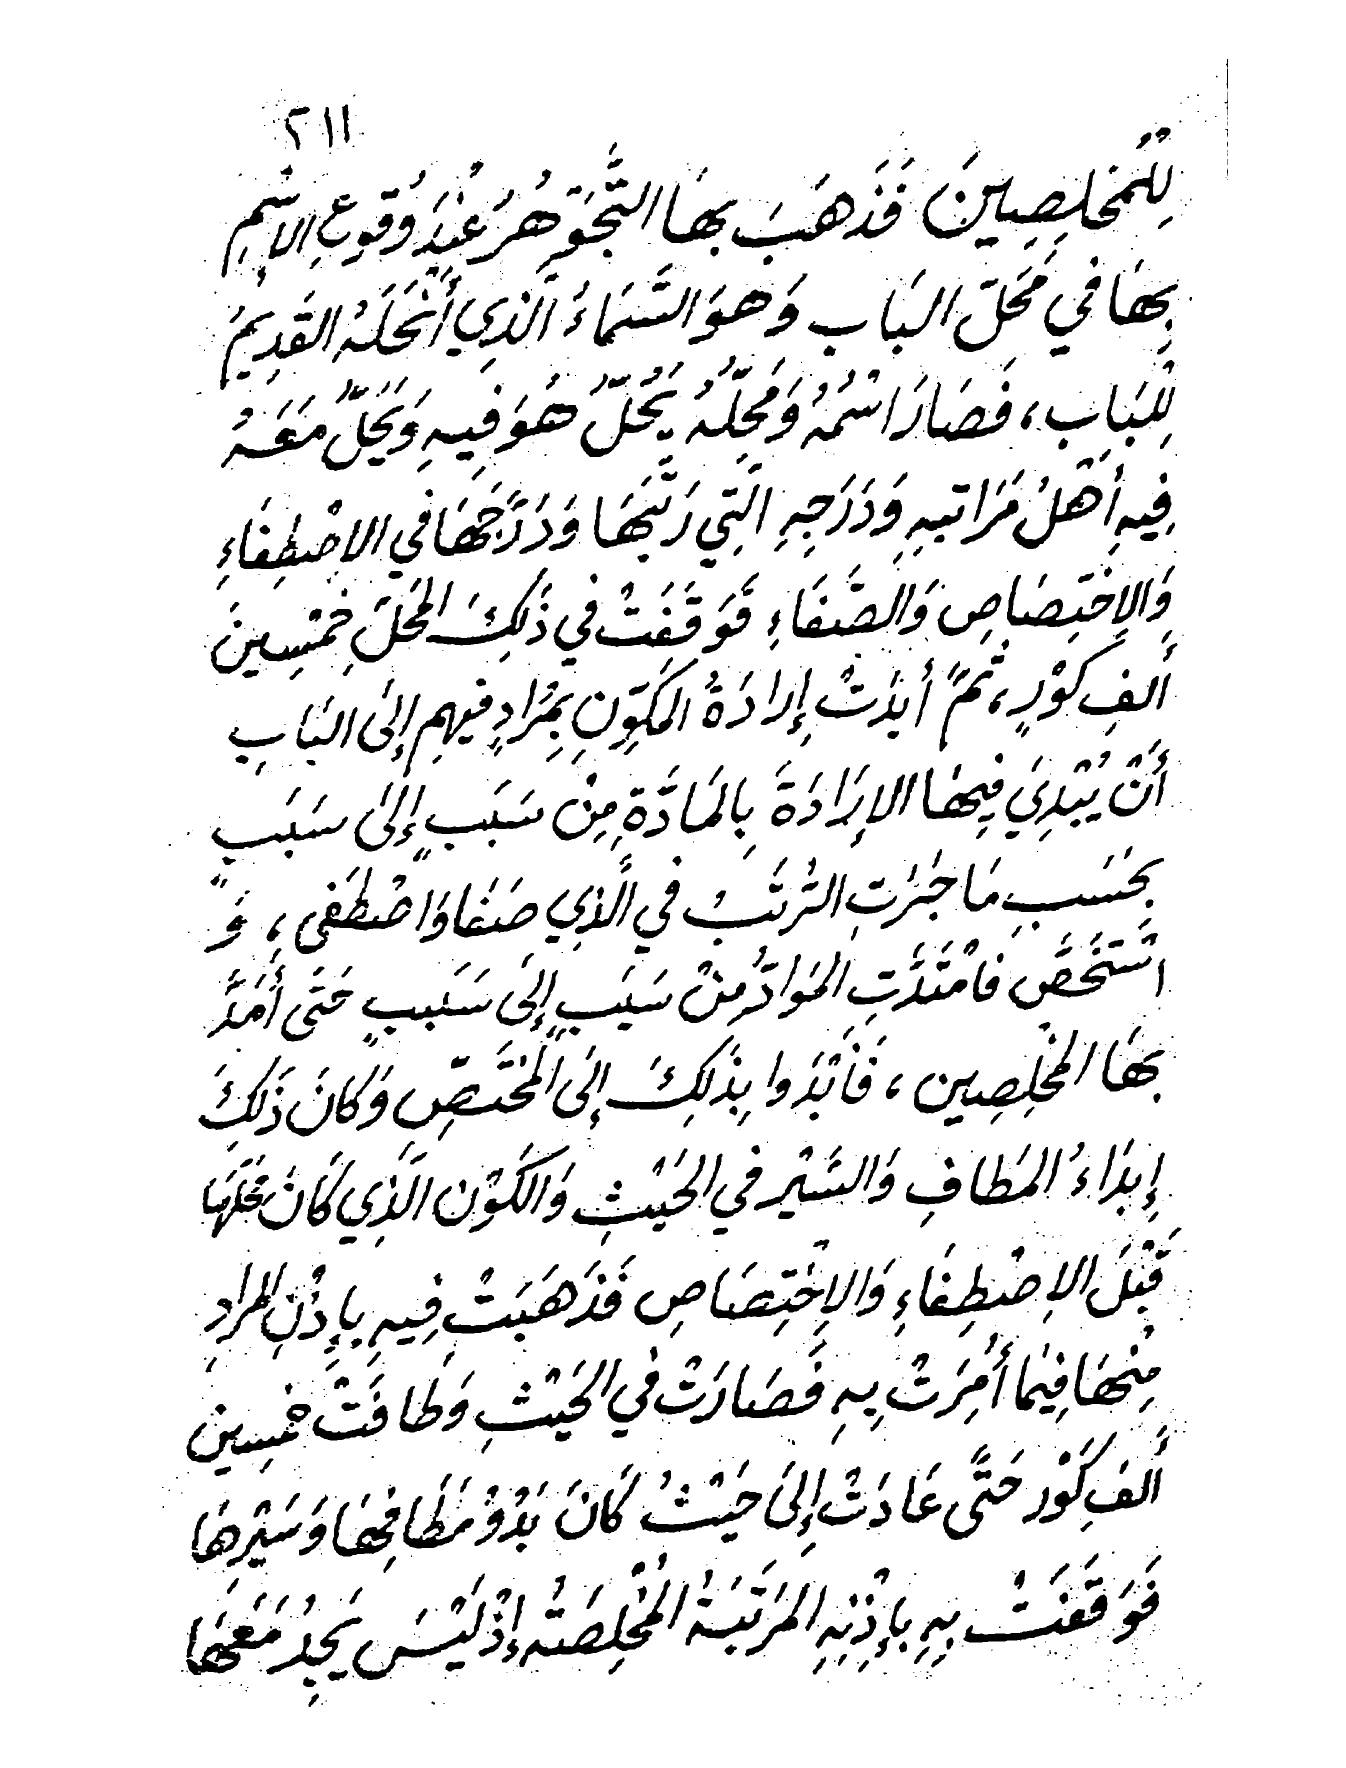 ٢١١
لِلْمُخلِصِينَ فَذَهَبَ بِهَا التَّجَوْهُرُ عِنْدَ وُقوعِ الاِسْمِ
بِهَا في مَحَلّ البَابِ وَهوَ السَّمَاءُ الَّذِي أَنْحَلَهُ القَدِيمُ
لِلْبَابِ، فَصَارَ اسْمُهُ وَمَحِلّهُ يَحُلّ هُوَ فِيهِ وَيَحِلُّ مَعَهُ
فِيهِ أَهْلُ مَرَاتبِهِ وَدَرَجِهِ الَّتِي رَتَّبَهَا وَدَرَّجَهَا في الاِصْطِفَاءِ
وَالاِخْتِصَاصِ وَالصَّفَاءِ فَوَقَفَتْ في ذَلِكَ المَحَلِّ خمْسِينَ
أَلفِ كَوْرٍ، ثُمَّ أَبدَتْ إِرادَةُ المكَوّنِ بِمُرادٍ فيهِم إِلى البَابِ
أَنْ يُبْدِيَ فِيهَا الإِرَادَةَ بِالمَادَّةِ مِنْ سَبَبٍ إِلىَ سَبَبٍ
بِحَسَبِ مَا جَرَتِ الرُّتَبُ في الَّذِي صَفَا وَاصْطَفى، وَ
اسْتَخَصَّ فَامْتَدَّتِ المَوَادُّ مِنْ سَبَبٍ إِلَى سَبَبٍ حَتَّى أَمَدَّ
بهَا المخْلِصِين، فَأَبْدَوا بِذَلِكَ إِلَى المُخْتَصِّ وَكانَ ذَلِكَ
إِبدَاءُ المَطَافِ وَالسَّيْرِ في الحَيْثِ وَالكَوْنِ الَّذِي كَانَ مَحَلّهَا
قَبْلَ الاِصْطِفَاءِ وَالاِخْتِصَاصِ فَذَهَبَتْ فِيهِ بِإِذْنِ المرادِ
مِنْهَا فِيمَا أُمِرَتْ بِهِ فَصَارَتْ في الحَيْثِ وَطَافَتْ خمسِين
أَلفِ كَوْر حَتَّى عَادَتْ إِلىَ حَيْثُ كَانَ بَدْوُ مَطَافِهَا وَسَيْرِهَا
فَوَقَفَتْ بِهِ بِإِذْنِهِ المَرْتَبَةُ المُخْلِصَةُ إِذْ لَيْسَ يَحِدُ مَعَهَا